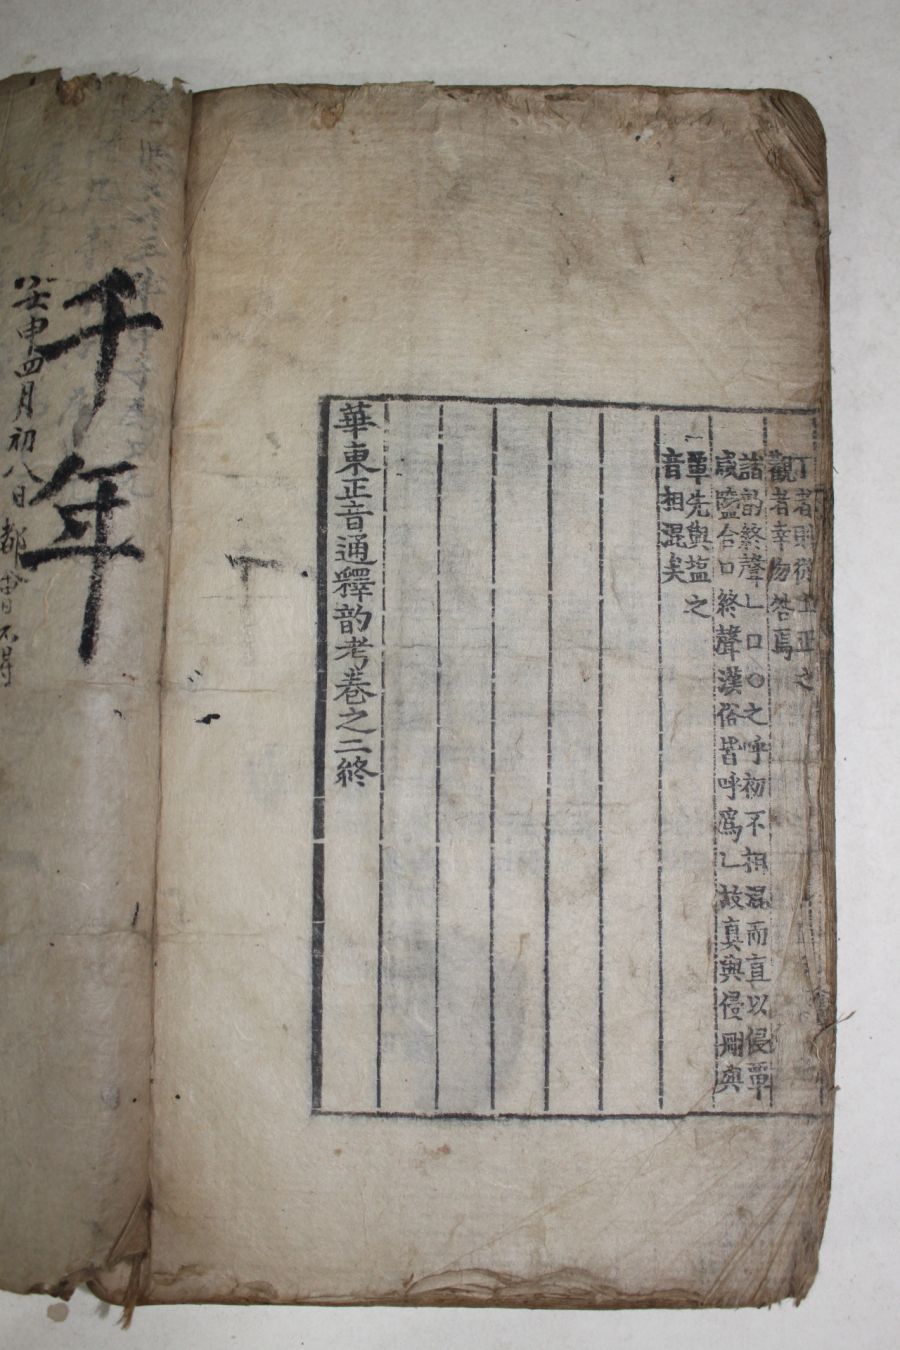 丁者則從立正之
觀者幸勿咎焉
諸韵終聲ㄴㅁㆁ之呼初不相混而直以侵覃
咸鹽合口終聲漢俗皆呼爲ㄴ故眞與侵刪與
覃先與塩之
音相混矣
華東正音通釋韵考卷之二終
千年
壬申四月初八日都